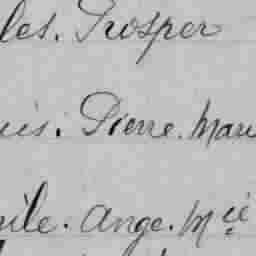 les. Prosper
uis. Pierre. Mari
ile. Ange. Mie